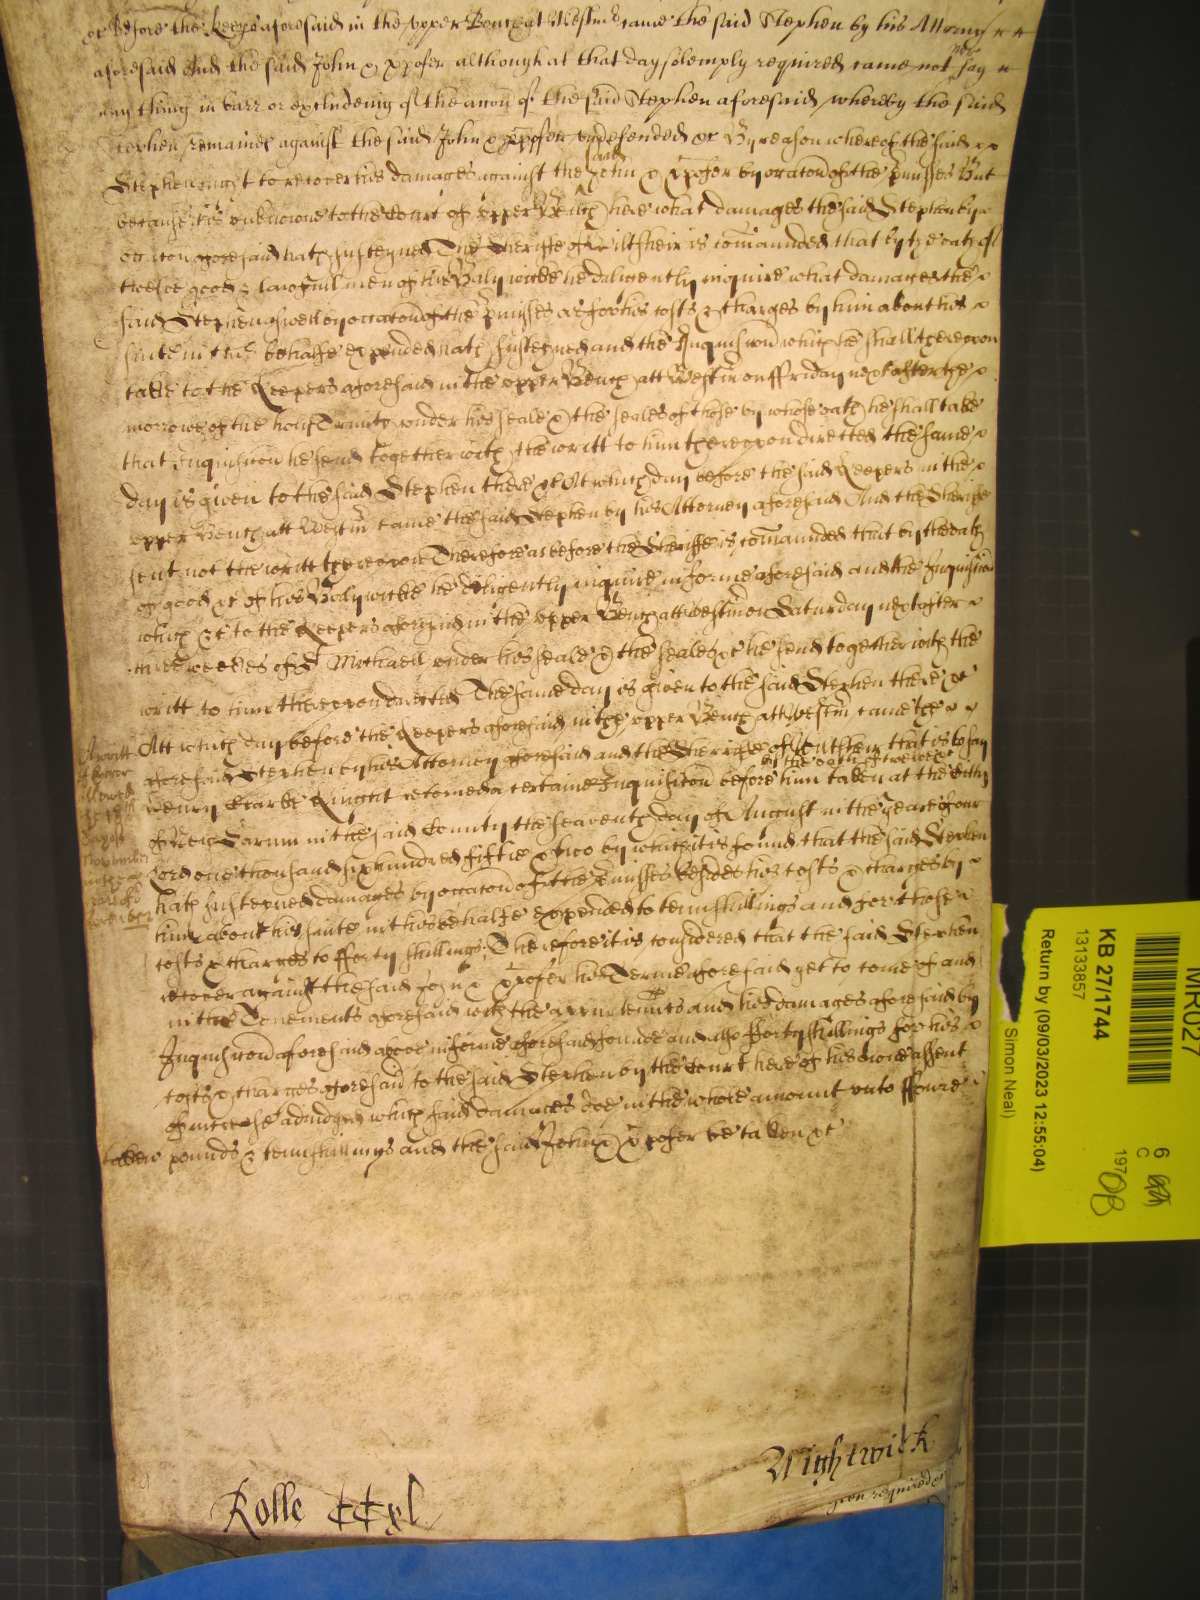 or before the keeps aforesaid in the upper Bench at Westm̄ came the said Stephen by his Attorny
aforesaid And the said John & xpofer although at that day solemply required came not nor say
any thing in barr or excludeing of the accōn of the said Stephen aforesaid whereby the said
Stephen remaines against the said John & xpofer undefended &c By reason whereof the said
Stephen ought to recover his damages against the said John & xpofer by occacōn of the p̄misses But
because it is unknowne to the Court of upper Bench here what damages the said Stephen by
occacōn aforesaid hath susteyned The Sheriffe of Wiltsheir is com̄aunded that by the oath of
twelve good & lawfull men of his Balywicke he diligently inquire what damages the
said Stephen aswell by occacōn of the p̄misses as for his costs & charges by him about his
suite in this behalfe expended hath susteyned and the Inquisicōn which he shall thereupon
take to the Keepers aforesaid in the upper Bench att Westm̄ on ffriday next after the
morrowe of the holy Trinity under his seale & the seales of those by whose oath he shall take
that Inquisicōn he send together with the writt to him thereupon directed the same
day is given to the said Stephen there &c At which day before the said Keepers in the
upper Bench att Westm̄ came the said Stephen by his Attorney aforesaid And the Sheriffe
sent not the writt thereupon Therefore as before the Sheriffe is com̄aunded that by the oath
of good &c of his Balywicke he diligently inquire in forme aforesaid and the Inquisicōn
which &c to the Keepers aforesaid in the upper Bench att Westm̄ on Saturday next after
three weekes of St Michaell under his seale & the seales &c he send together with the
writt to him thereupon directed The same day is given to the said Stephen there &c
Att which day before the Keepers aforesaid in the upper Bench att Westm̄ came the
aforesaid Stephen by his Attorney aforesaid and the Sherriffe of Wiltsheir that is to say
Henry Clarke Esquire retorned a certaine Inquisicōn before him taken at the Citty
by the oath of twelve &c
of New Sarum in the said County the seaventh day of August in the yeare of our
Lord one thousand six hundred fiftie & two by which it is found that the said Stephen
hath susteyned damages by occacōn of the p̄misses besides his costs & charges by
him about his suite in this behalfe expended to tenn shillings and for those
costs & charges to fforty shillings Therefore it is considered that the said Stephen
recover against the said John & xpofer his Terme aforesaid yet to come of and
in the Tenements aforesaid with the appurtenn̄ts and his damages aforesaid by
Inquisicōn aforesaid above in forme aforesaid founde and also fforty shillings for his
costs & charges aforesaid to the said Stephen by the Court here of his owne assent
of increase adiudged which said damages doe in the whole amount unto ffoure
pounds & tenn shillings and the said John & xpofer be taken &c
A writt
of Error
allowed
November
Wightwick
Rolle CCxl
MR027
KB 27/1744
13133857
Return by (09/03/2023 12:55:04)
Simon Neal)
6
C
197